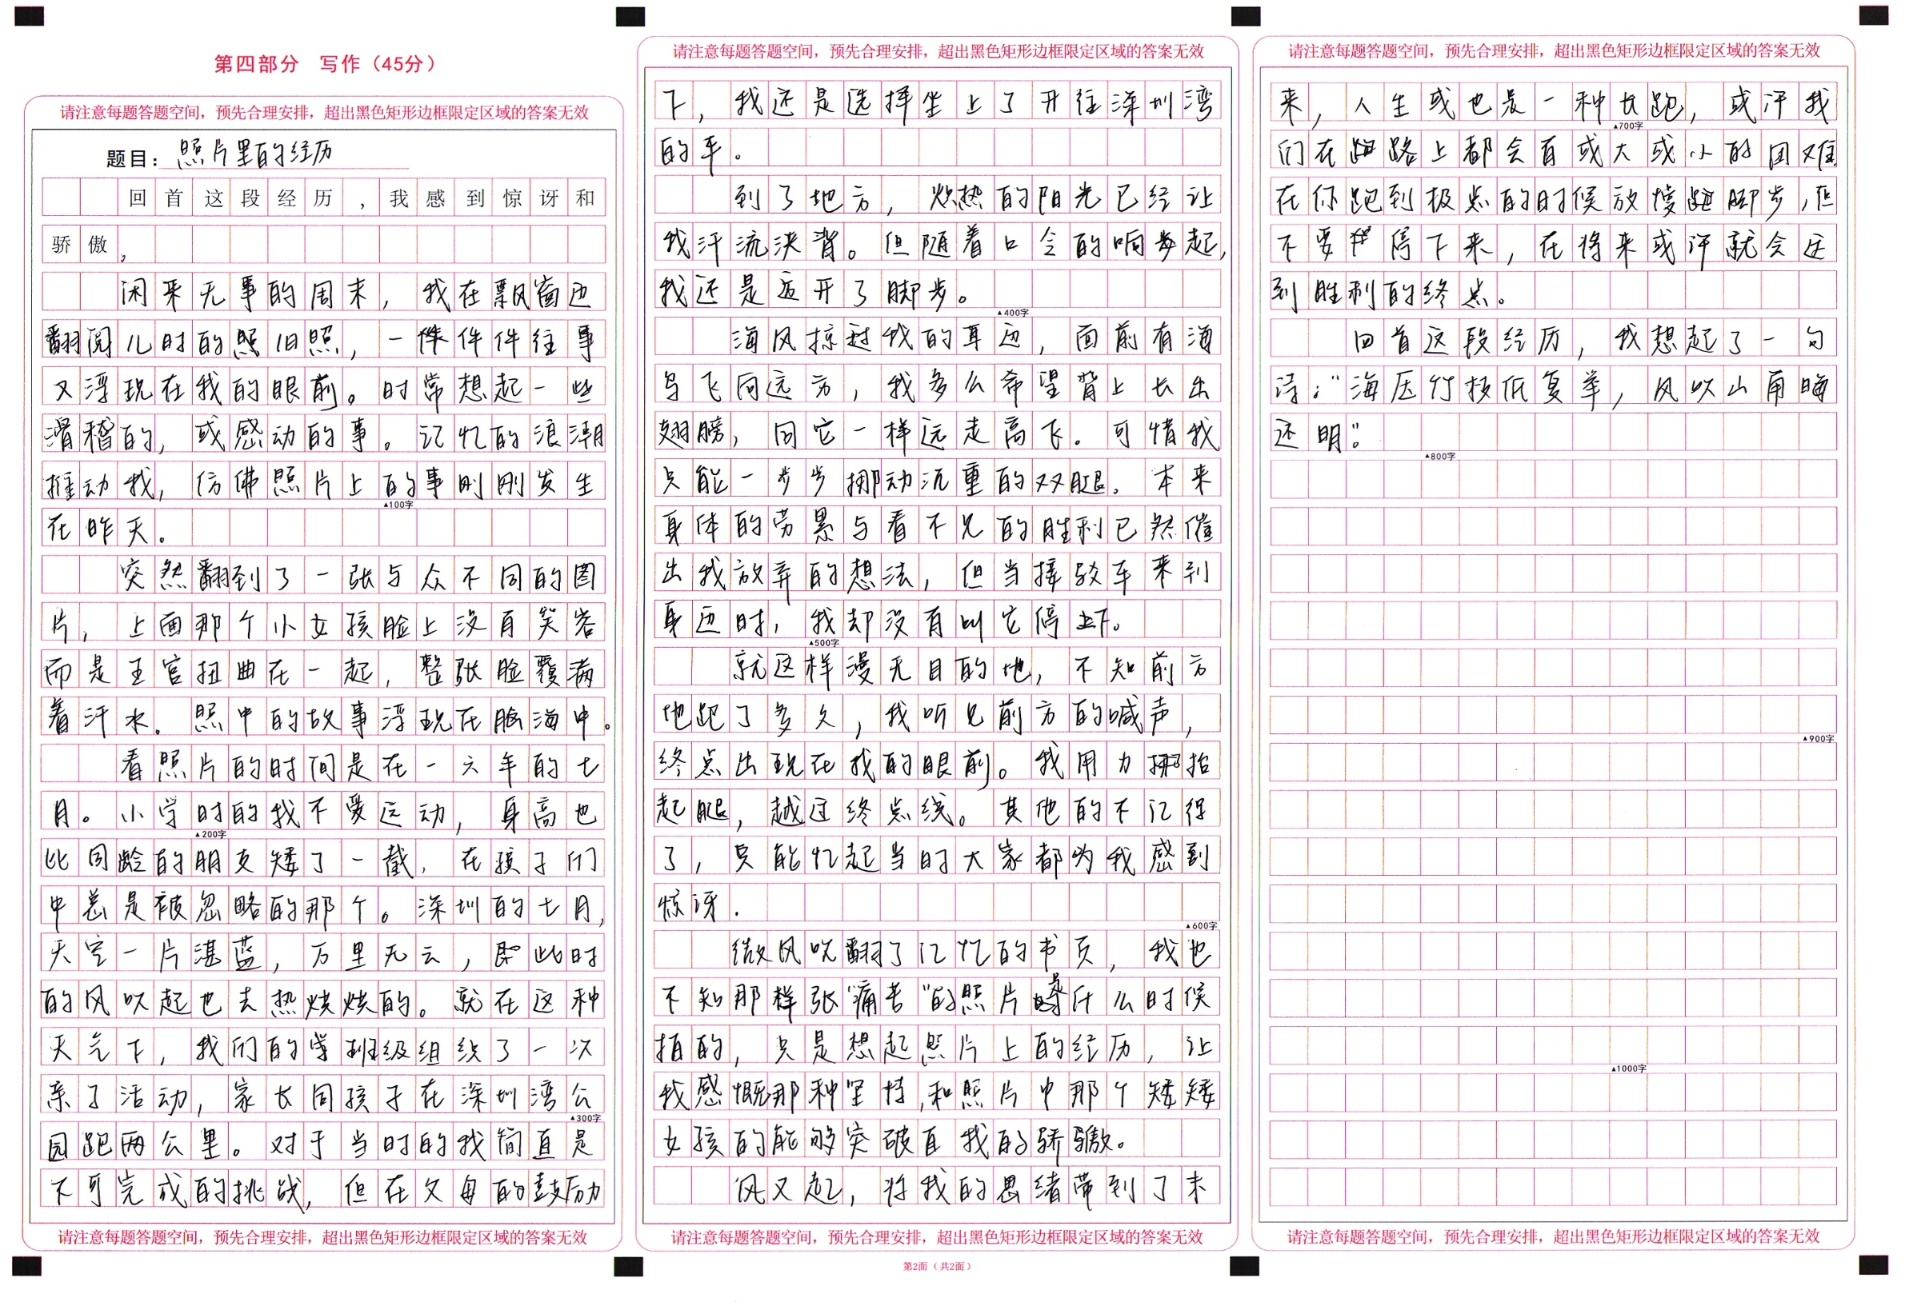 第四部分 写作（45分）
请注意每题答题空间，预先合理安排，超出黑色矩形边框限定区域的答案无效
题目：照片里的经历
回首这段经历，我感到惊讶和
骄傲，
闲来无事的周末，我在飘窗边
翻阅儿时的照旧照，一件件件往事
又浮现在我的眼前。时常想起一些
滑稽的，或感动的事。记忆的浪潮
推动我，仿佛照片上的事刚刚发生
▲100字
在昨天。
突然翻到了一张与众不同的图
片，上面那个小女孩脸上没有笑容
而是五官扭曲在一起，整张脸覆满
着汗水。照中的故事浮现在脑海中。
看照片的时间是在一六年的七
月。小学时的我不爱运动，身高也
▲200字
比同龄的朋友矮了一截，在孩子们
中总是被忽略的那个。深圳的七月，
天空一片湛蓝，万里无云，即此时
的风吹起也去热烘烘的。就在这种
天气下，我们的学班级组织了一次
亲子活动，家长同孩子在深圳湾公
▲300字
园跑两公里。对于当时的我简直是
不可完成的挑战，但在父母的鼓励
请注意每题答题空间，预先合理安排，超出黑色矩形边框限定区域的答案无效
请注意每题答题空间，预先合理安排，超出黑色矩形边框限定区域的答案无效
下，我还是选择坐上了开往深圳湾
的车。
到了地方，炽热的阳光已经让
我汗流浃背。但随着口令的响起，
我还是迈开了脚步。
▲400字
海风掠过我的耳边，面前有海
鸟飞向远方，我多么希望背上长出
翅膀，同它一样远走高飞。可惜我
只能一步步挪动沉重的双腿。本来
身体的劳累与看不见的胜利已然催
出我放弃的想法，但当接驳车来到
身边时，我却没有叫它停下。
▲500字
就这样漫无目的地，不知前方
地跑了多久，我听见前方的喊声，
终点出现在我的眼前。我用力抬
起腿，越过终点线。其他的不记得
了，只能忆起当时大家都为我感到
惊讶.
▲600字
微风吹翻了记忆的书页，我也
不知那样张“痛苦”的照片是什么时候
拍的，只是想起照片上的经历，让
我感慨那种坚持，和照片中那个矮矮
女孩的能够突破自我的骄傲。
风又起，将我的思绪带到了未
请注意每题答题空间，预先合理安排，超出黑色矩形边框限定区域的答案无效
第2面（共2面）
请注意每题答题空间，预先合理安排，超出黑色矩形边框限定区域的答案无效
来，人生或也是一种长跑，或许我
▲700字
们在跑路上都会有或大或小的困难
在你跑到极点的时候放慢脚步，但
不要停下来，在将来或许就会达
到胜利的终点。
回首这段经历，我想起了一句
诗：“海压竹枝低复举，风吹山角晦
还明”。
▲800字
▲900字
▲1000字
请注意每题答题空间，预先合理安排，超出黑色矩形边框限定区域的答案无效